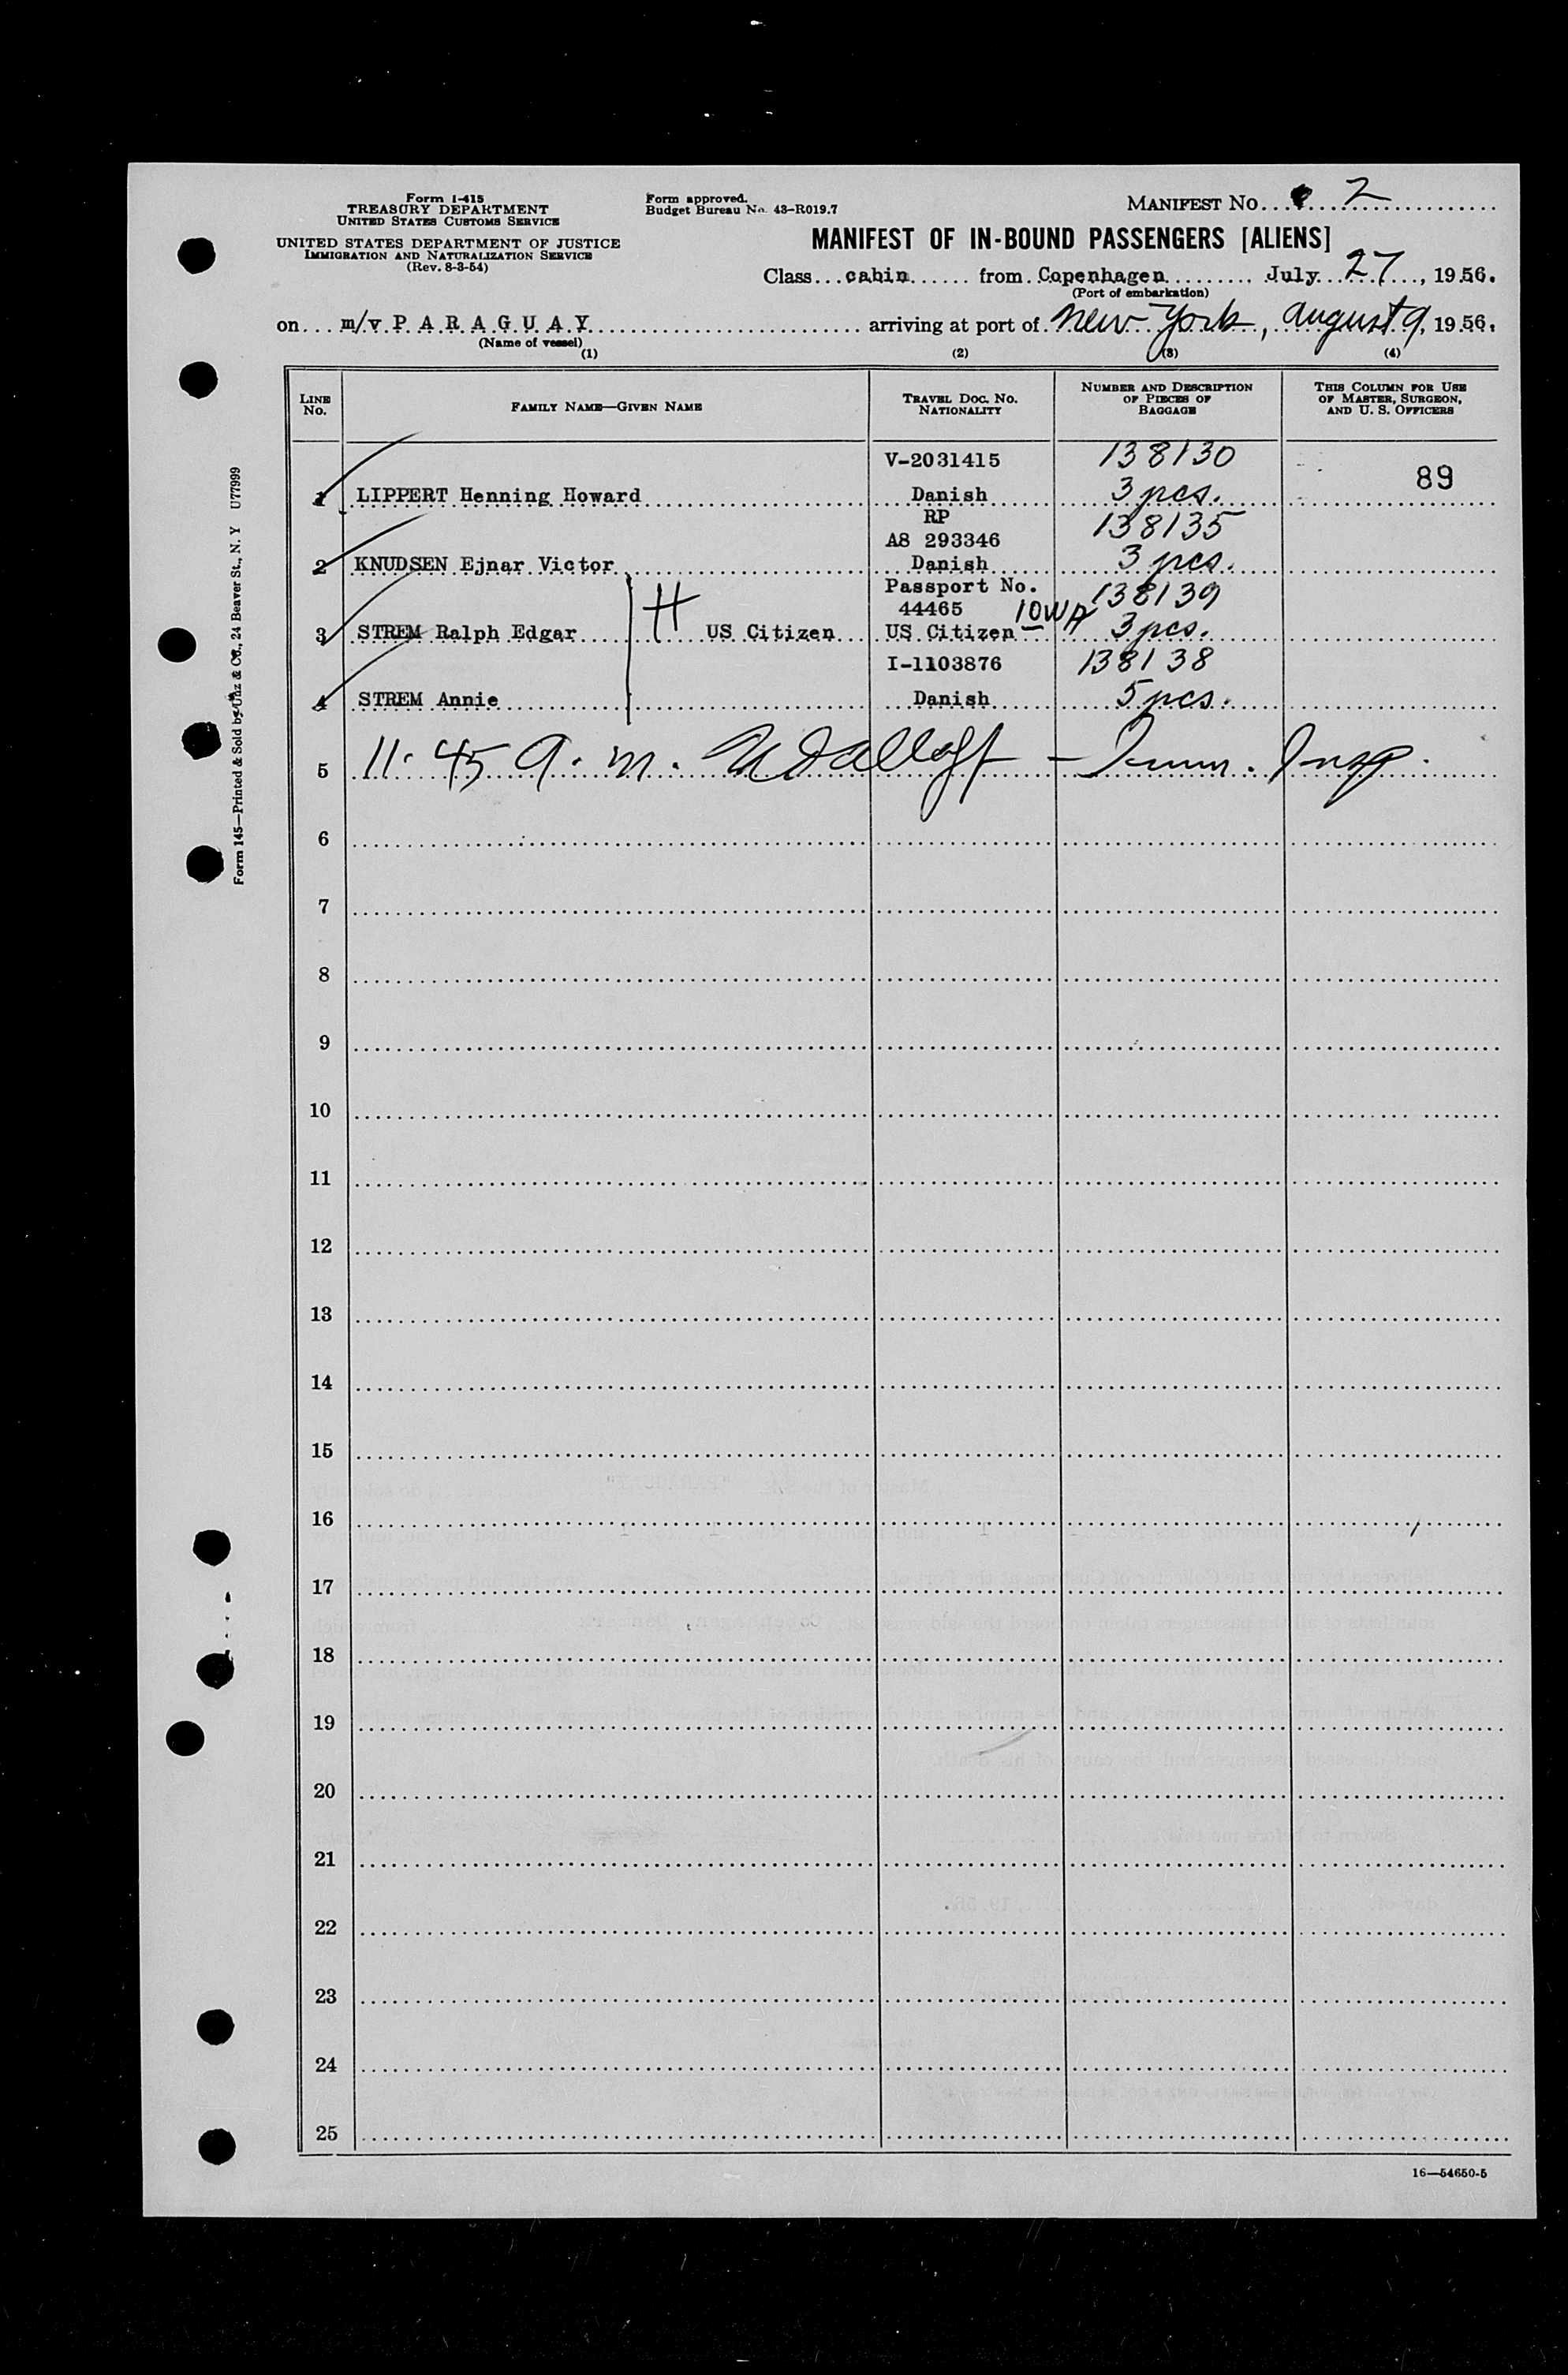 Form I-415
TREASURY DEPARTMENT
UNITED STATES CUSTOMS SERVICE
UNITED STATES DEPARTMENT OF JUSTICE
IMMIGRATION AND NATURALIZATION SERVICE
(Rev. 8-3-54)
Form approved.
Budget Bureau No. 43-R019.7
MANIFEST No. 2
MANIFEST OF IN-BOUND PASSENGERS [ALIENS]
Class cabin from Copenhagen, July 27, 1956.
(Port of embarkation)
on m/v P A R A G U A Y arriving at port of New York, August 9, 1956.
(Name of vessel)
(1) (2) (3) (4)
LINE No.
FAMILY NAME—GIVEN NAME
TRAVEL DOC. NO. NATIONALITY
NUMBER AND DESCRIPTION OF PIECES OF BAGGAGE
THIS COLUMN FOR USE OF MASTER, SURGEON, AND U. S. OFFICERS
V-2031415 138130
1 LIPPERT Henning Howard Danish 3 pcs. 89
RP
A8 293346 138135
2 KNUDSEN Ejnar Victor Danish 3 pcs.
Passport No.
44465 138139
3 STREM Ralph Edgar H US Citizen US Citizen IOWA 3 pcs.
I-1103876 138138
4 STREM Annie Danish 5 pcs.
5 11:45 A. M. - Imm. Insp.
6
7
8
9
10
11
12
13
14
15
16
17
18
19
20
21
22
23
24
25
16—54650-5
Form 145—Printed & Sold by Unz & Co., 24 Beaver St., N. Y U77999